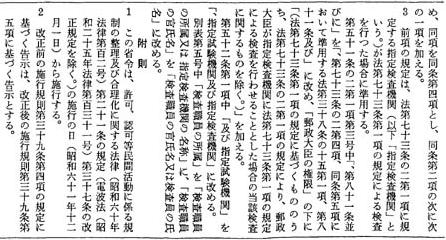 め、同項を同条第四項とし、同条第二項の次に次
の一項を加える。
３　前項の規定は、法第七十三条の二第一項に規
定する指定検査機関（以下「指定検査機関」と
いう。）が法第七十三条第一項の規定による検査
を行つた場合に準用する。
第五十一条の二第一項第三号中、「第八十一条並
びに」を「、第七十三条の二第四項、同条第五項に
おいて準用する法第三十九条の二第十一項、第八
十一条及び」に改め、「郵政大臣の権限」の下に
「（法第七十三条の二第一項の規定に基づくもののう
ち、法第七十三条の二第一項の規定により、郵政
大臣が指定検査機関に法第七十三条第一項の規定
による検査を行わせることとした場合の当該検査
に関するものを除く。）」を加える。
第五十二条第一項中「及び指定試験機関」を
「、指定試験機関及び指定検査機関」に改める。
別表第五号中「検査職員の所属」を「検査職員
の所属又は指定検査機関の名称」に、「検査職員
の官氏名」を「検査職員の官氏名又は検査員の氏
名」に改める。
附　則
１　この省令は、許可、認可等民間活動に係る規
制の整理及び合理化に関する法律（昭和六十年
法律第百二号）第二十一条の規定（電波法（昭
和二十五年法律第百三十一号）第三十七条の改
正規定を除く。）の施行の日（昭和六十一年十二
月一日）から施行する。
２　改正前の施行規則第三十九条第四項の規定に
基づく告示は、改正後の施行規則第三十九条第
五項に基づく告示とする。